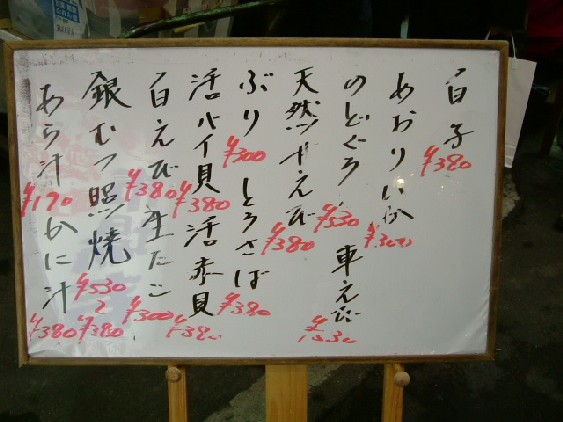 白子 ¥380
あおりいか ¥300
のどぐろ ¥530 車えび
天然ツキえび ¥380
ぶり ¥300 とろさば ¥380
活バイ貝 ¥380 活赤貝
白えび ¥380 生たこ ¥300
銀むつ照焼 ¥530 ¥380
あら汁 ¥170 かに汁 ¥380